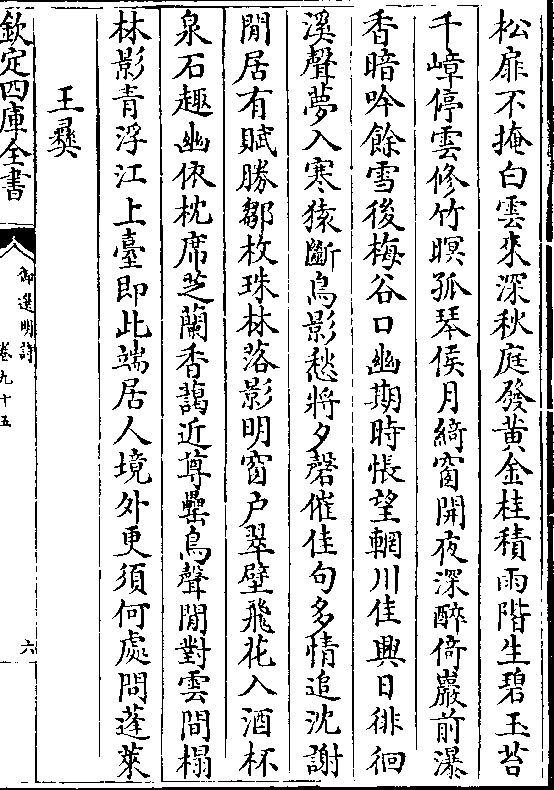 松扉不掩白雲來深秋庭發黃金桂積雨階生碧玉苔
千嶂停雲修竹暝孤琴俟月綺窗開夜深醉倚巖前瀑
香暗吟餘雪後梅谷口幽期時悵望輞川佳興日徘徊
溪聲夢入寒猿斷鳥影愁將夕磬催佳句多情追沈謝
閒居有賦勝鄒枚珠林落影明窗户翠壁飛花入酒杯
泉石趣幽依枕席芝蘭香藹近尊罍鳥聲閒對雲間榻
林影青浮江上臺即此端居人境外更須何處問蓬萊
王彝
欽定四庫全書
御選明詩
卷九十五
六